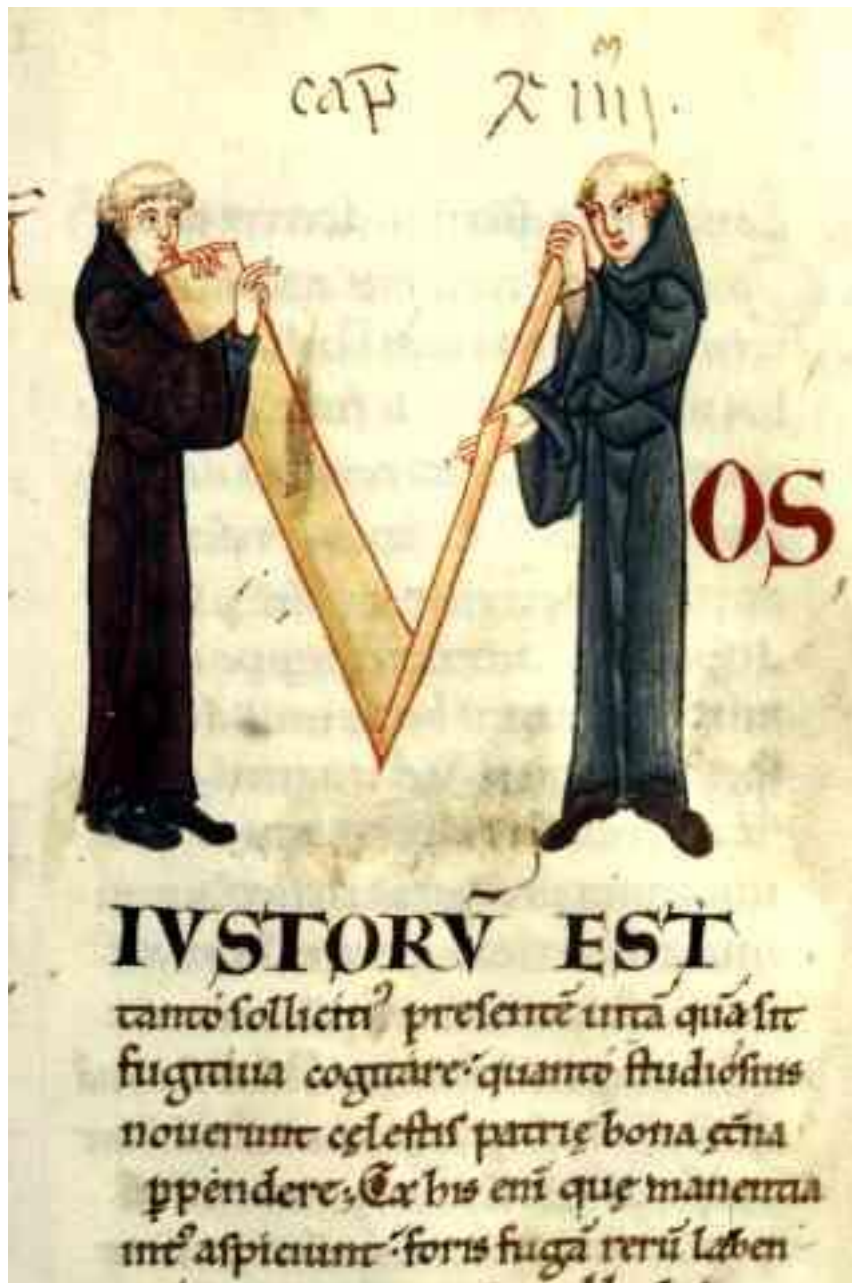 cap̄ xiiii.
M OS
IVSTORV̄ EST
tanto sollicitiꝰ presentē uitā quā sit
fugitiua cogitare: quanto studiosius
nouerunt cęlestis patrię bona ęt̄na
ꝑpendere; Ex his enī quę manentia
intꝰ aspiciunt: foris fugā rerū laben